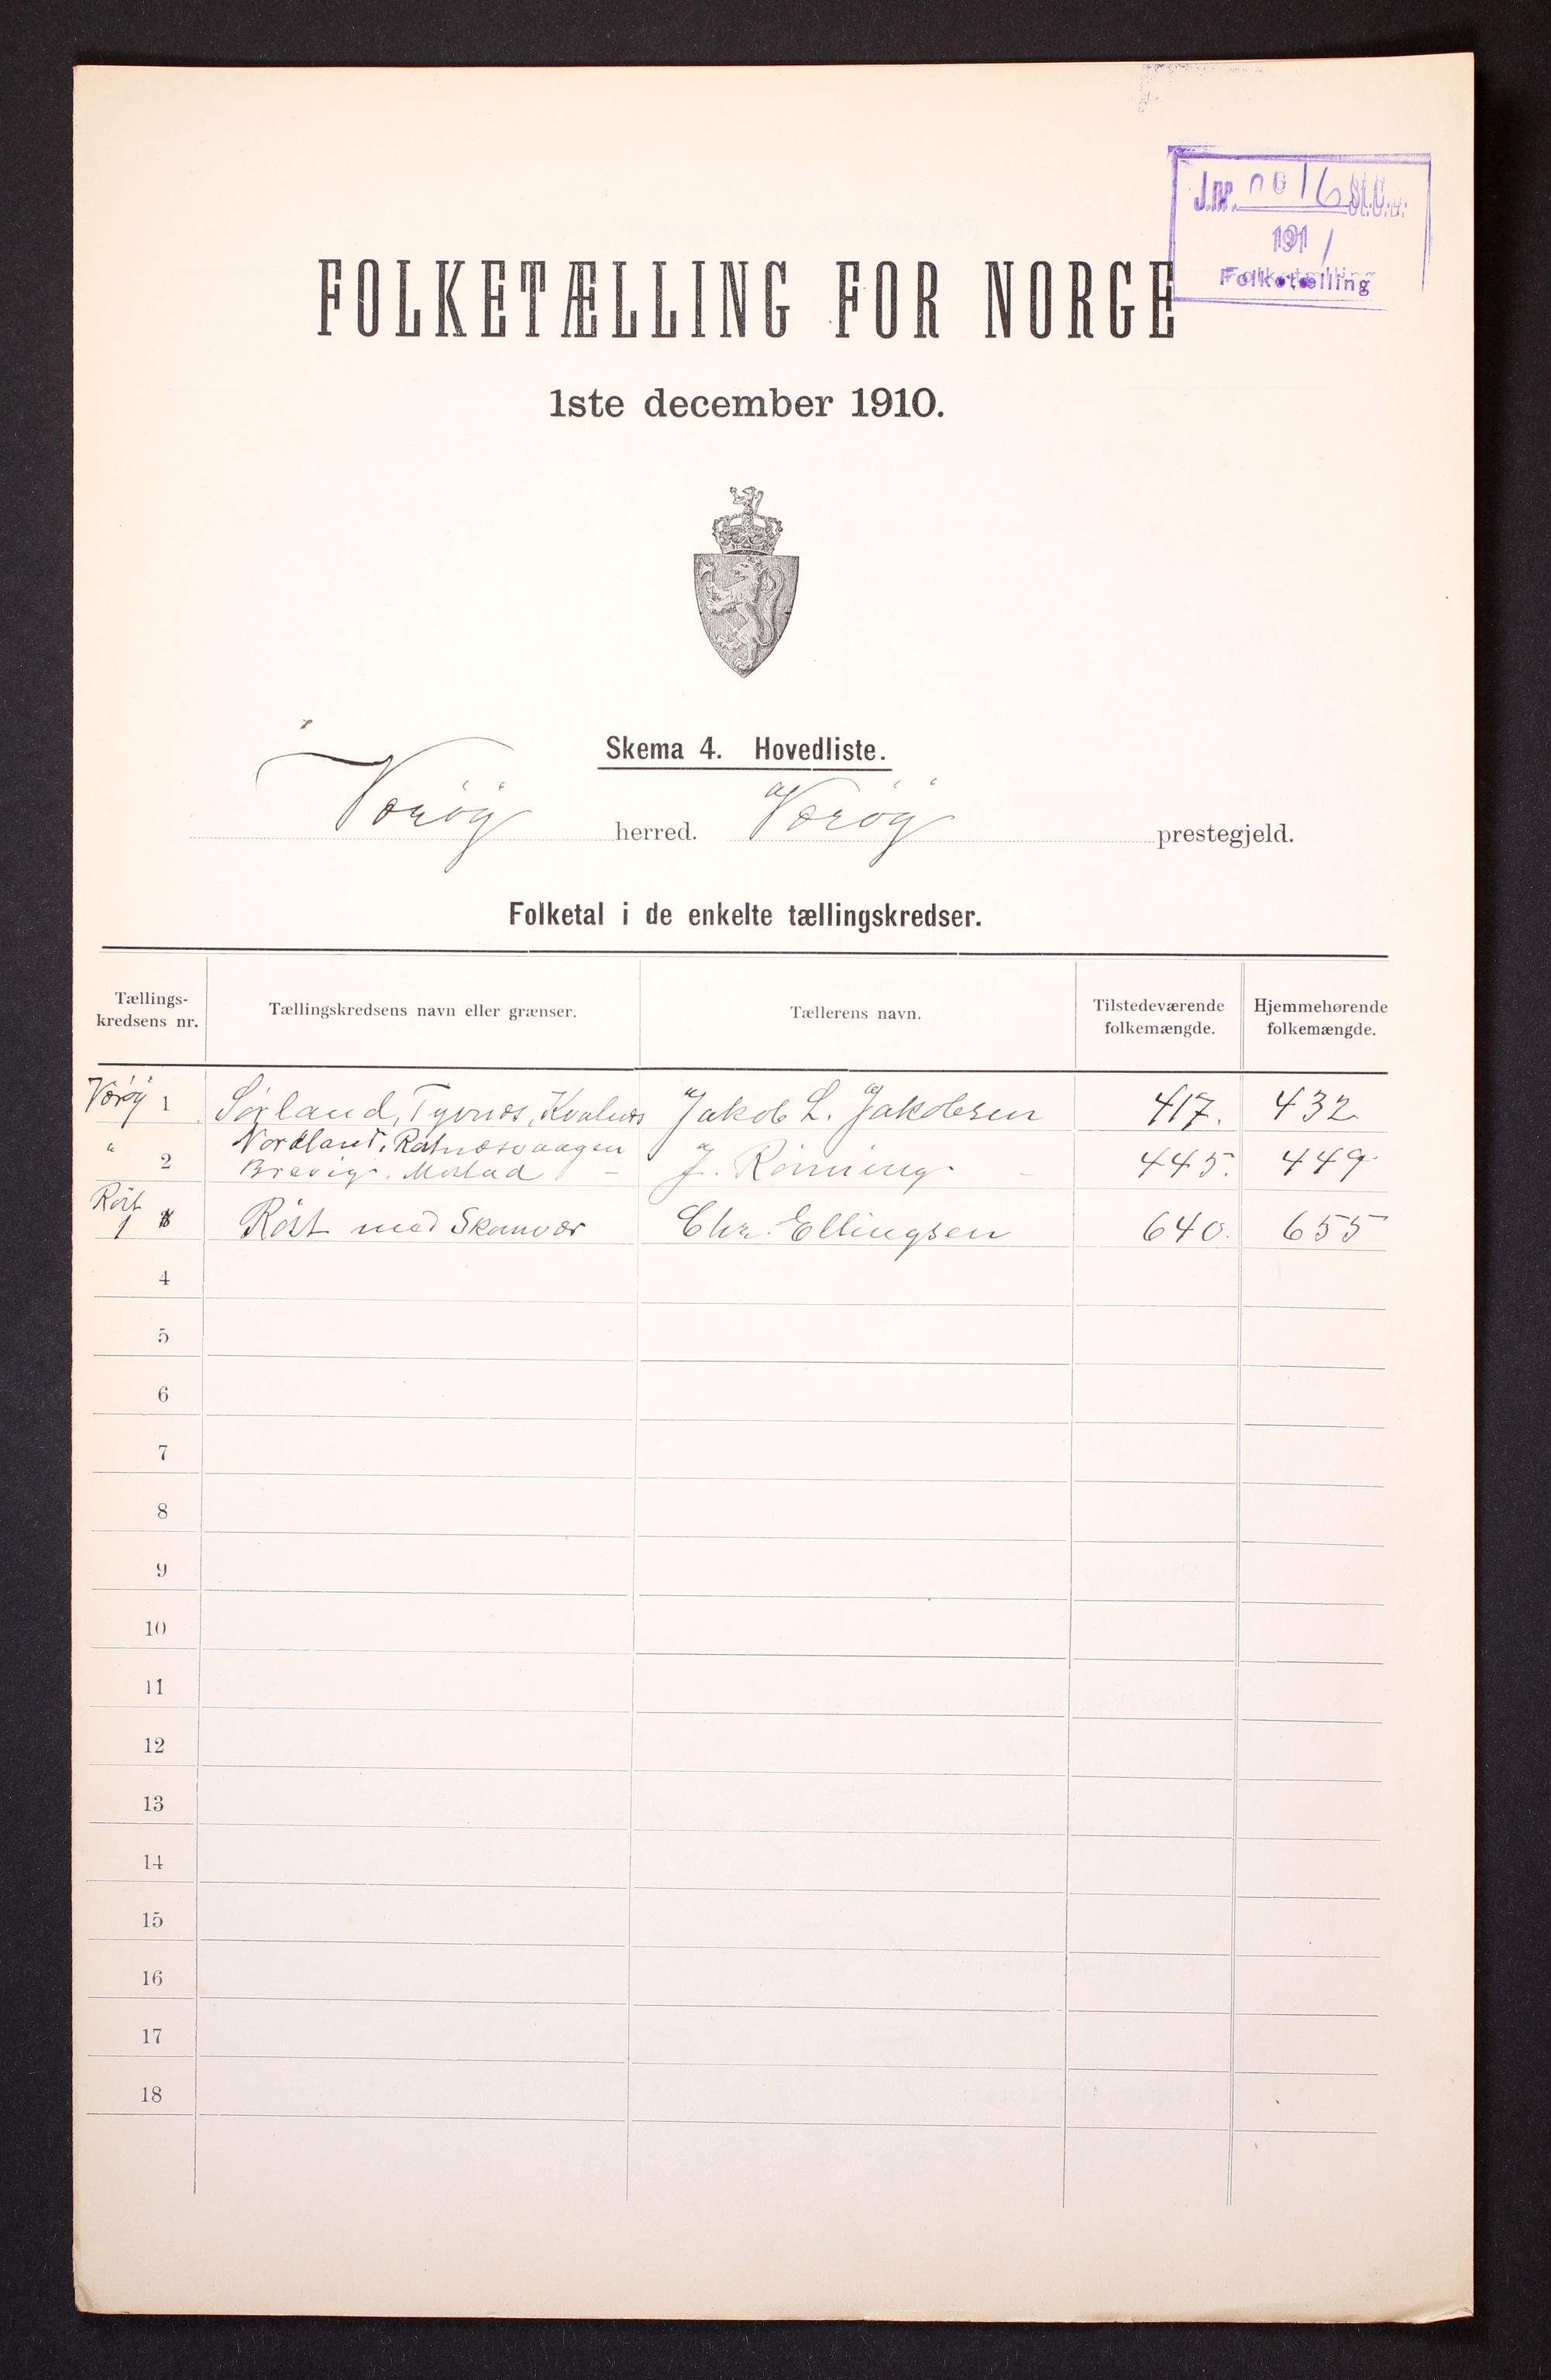 J.nr. 0016 St.C.B.
1911
Folketælling
FOLKETÆLLING FOR NORGE
1ste december 1910.
Skema 4. Hovedliste.
Værøy herred. Værøy prestegjeld.
Folketal i de enkelte tællingskredser.
Tællings-kredsens nr. Tællingskredsens navn eller grænser. Tællerens navn. Tilstedeværende folkemængde. Hjemmehørende folkemængde.
Værøy 1 Sørland, Tyvnæs, Kvalnæs Jakob L. Jakobsen 417. 432
" 2 Nordland, Røstnæsvaagen
Brevig. Mostad J. Rönning 445. 449
Röst 1 Röst med Skomvær Chr. Ellingsen 640. 655
4
5
6
7
8
9
10
11
12
13
14
15
16
17
18